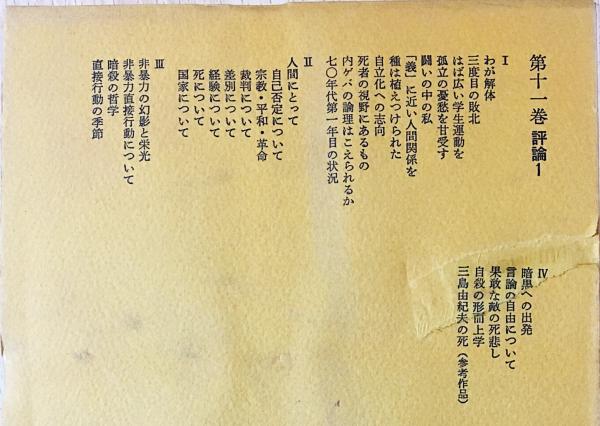 第十一巻 評論1
Ⅰ
わが解体
三度目の敗北
はば広い学生運動を
孤立の憂愁を甘受す
闘いの中の私
「義」に近い人間関係を
種は植えつけられた
自立化への志向
死者の視野にあるもの
内ゲバの論理はこえられるか
七〇年代第一年目の状況
Ⅱ
人間にとって
自己否定について
宗教・平和・革命
裁判について
差別について
経験について
死について
国家について
Ⅲ
非暴力の幻影と栄光
非暴力直接行動について
暗殺の哲学
直接行動の季節
Ⅳ
暗黒への出発
言論の自由について
果敢な敵の死悲し
自殺の形而上学
三島由紀夫の死(参考作品)